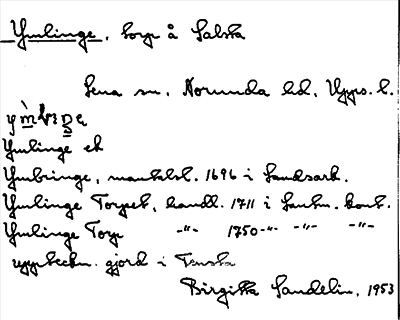 Ymlinge, torp å Salsta
Lena sn, Norunda hd, Upps. l.
Ymlinge ek
Ymbringe, mantalsl. 1696 i Landsark.
Ymlinge Torpet, handl. 1711 i Lantm. kont.
Ymlinge Torp -"- 1750 -"- -"- -"-
uppteckn. gjord i Tensta
Birgitta Sandelin, 1953